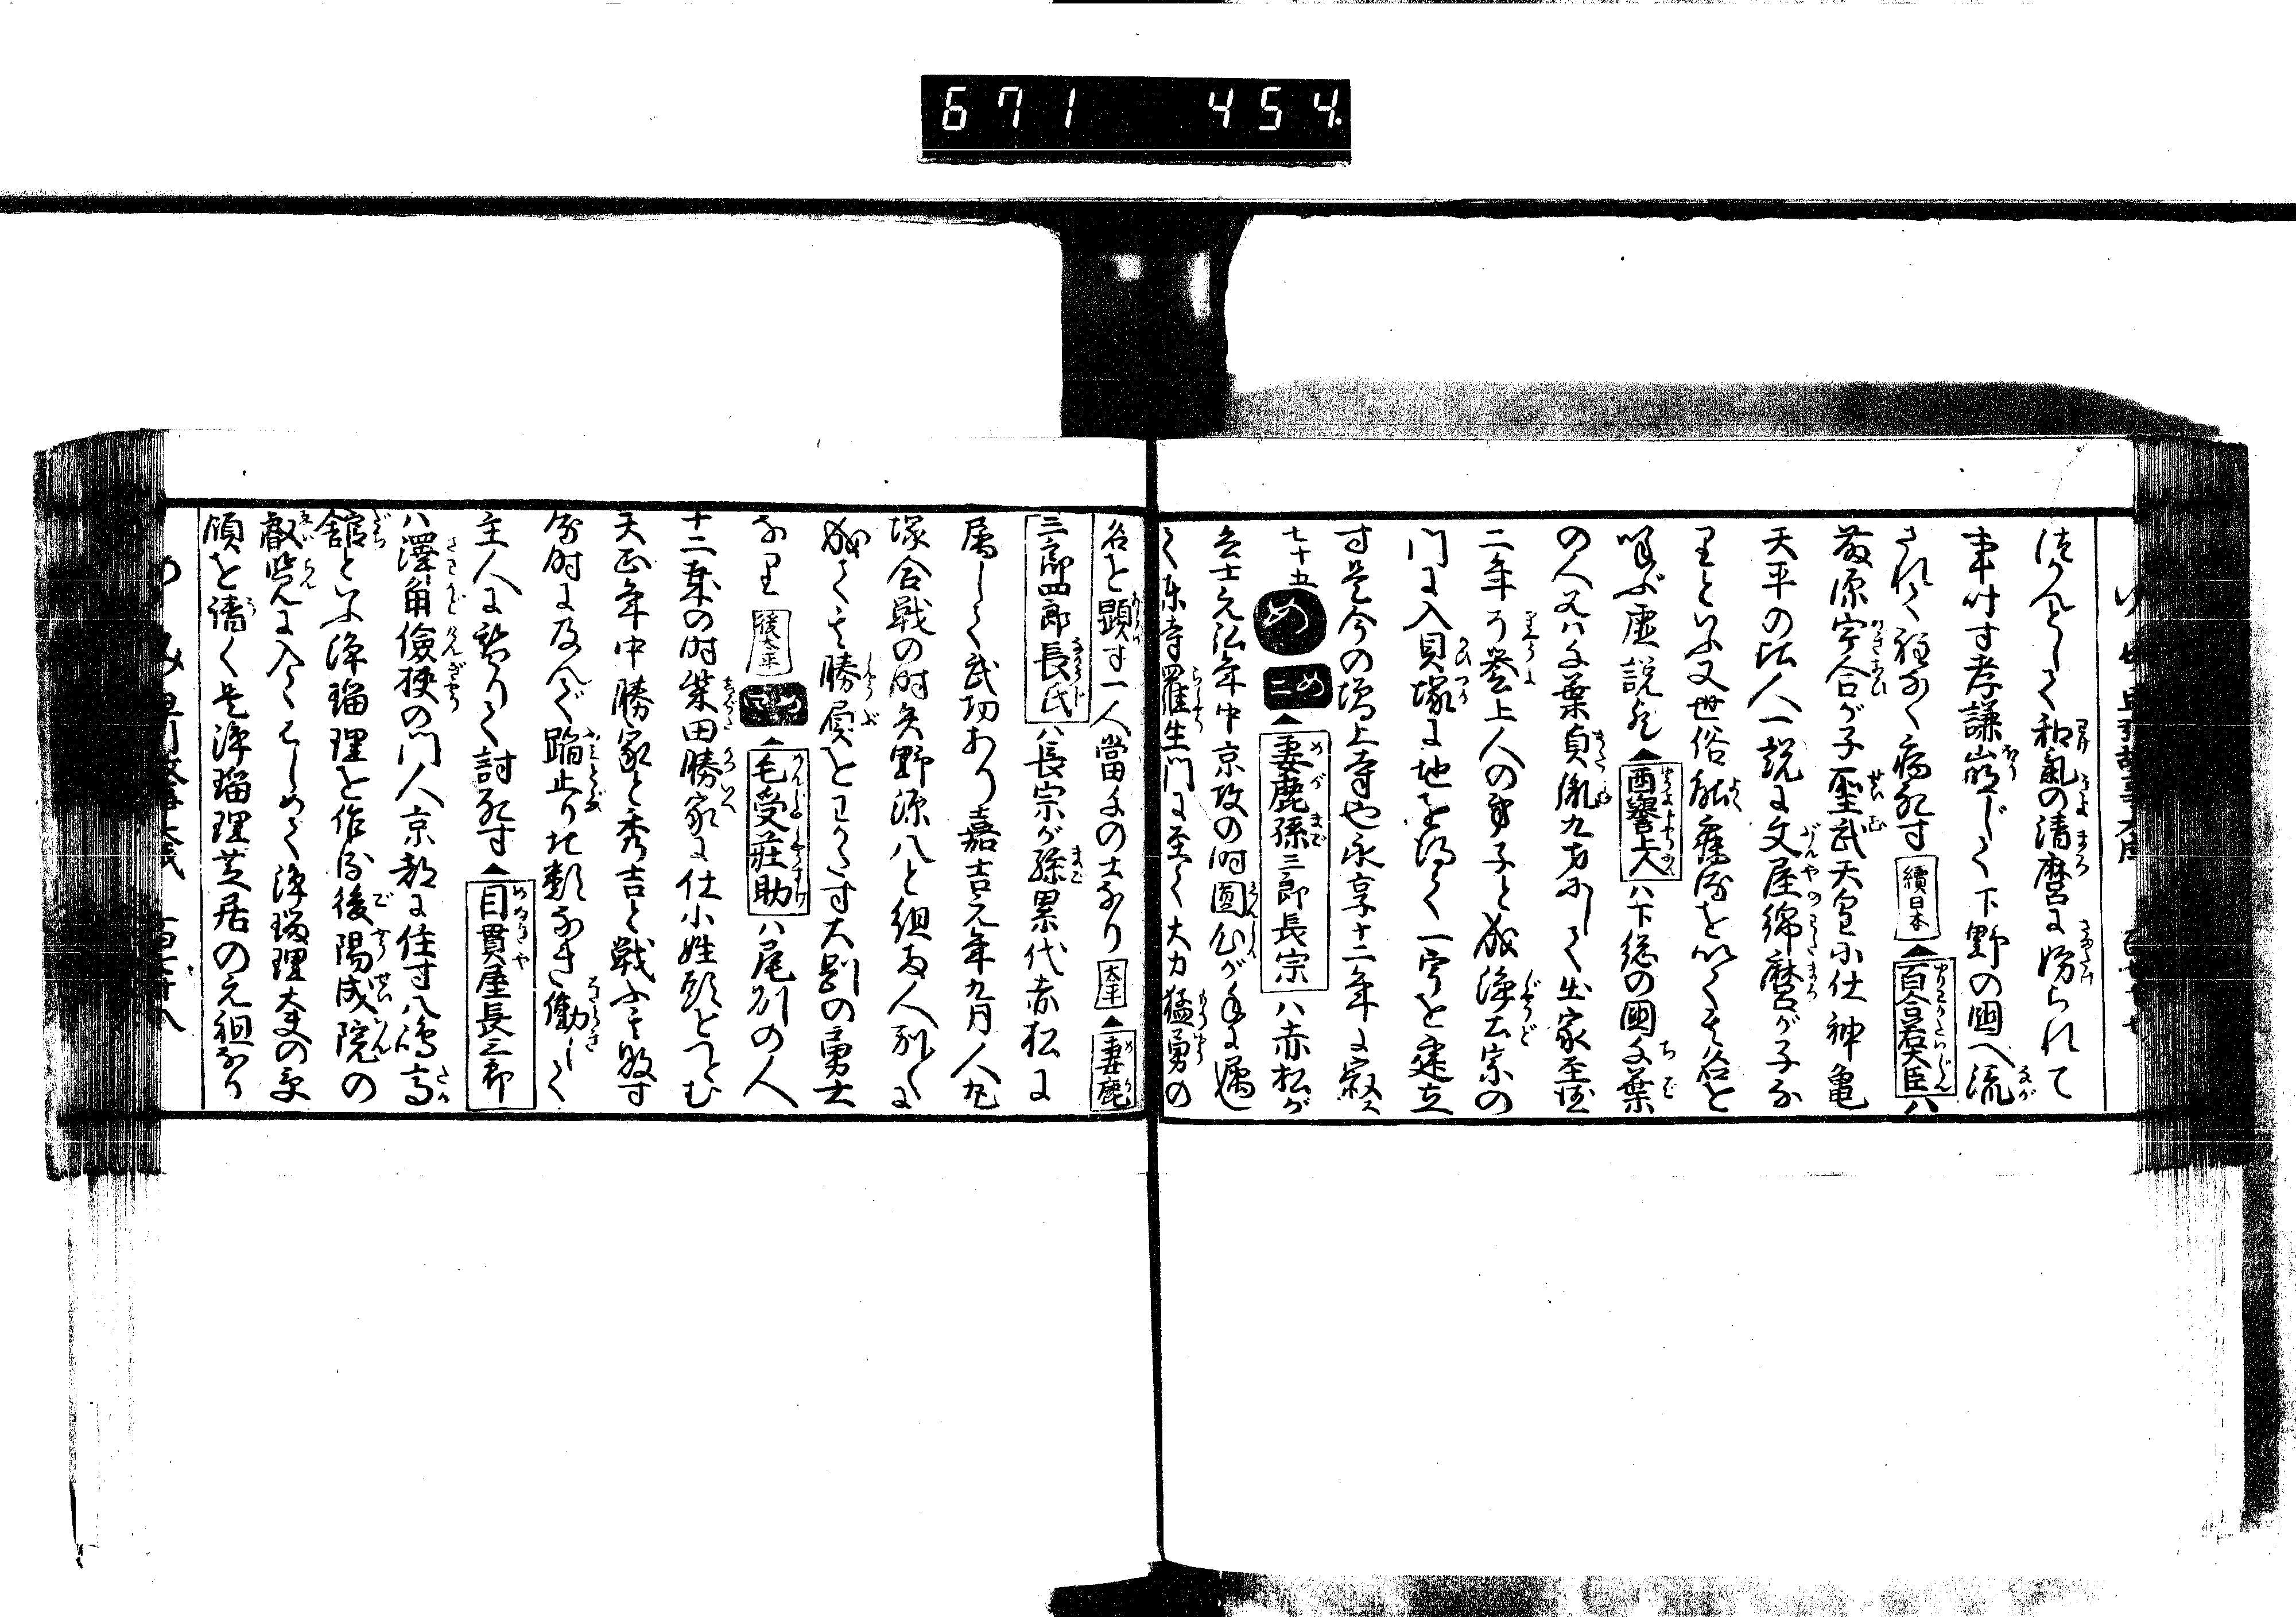 671 454
法かんとして和氣の清麿に妨られて
事叶す孝謙崩じて下野の國へ流
されて程なく病死す 續日本 ▲百合若大臣ハ
藤原宇合が子聖武天皇に仕神亀
天平の比人一説に文屋綿麿が子な
りといふ又世俗能癧を以て其名を
呼ぶ虚説也 ▲酉譽上人ハ下総の國千葉
の人又ハ千葉貞胤九男にして出家至徳
二年了譽上人の弟子と成浄土宗の
門に入貝塚に地を得て一宇を建立
す是今の増上寺也永享十二年に寂ス
七十五 め 二め ▲妻鹿孫三郎長宗ハ赤松が
兵士元弘年中京攻の時圓心が手に属し
て東寺羅生門に至て大力猛勇の
名を顕す一人當千の士なり 太平 ▲妻鹿
三郎四郎長氏ハ長宗が孫累代赤松に
属して武功あり嘉吉元年九月人丸
塚合戦の時矢野源八と組両人別々に
成て其勝負をわかたす大剛の勇士
なり 後太平 ▲毛受荘助ハ尾州の人
十二歳の時柴田勝家に仕小姓頭をつとむ
天正年中勝家と秀吉と戦ふて敗す
る時に及んで踏止り比類なき働して
主人に替りて討死す ▲目貫屋長三郎
ハ澤角儉挍の門人京都に住す八嶋高
舘といふ浄瑠理を作る後陽成院の
叡覧に入てはしめて浄瑠理太夫の受
領を請く是浄瑠理芝居の元祖なり